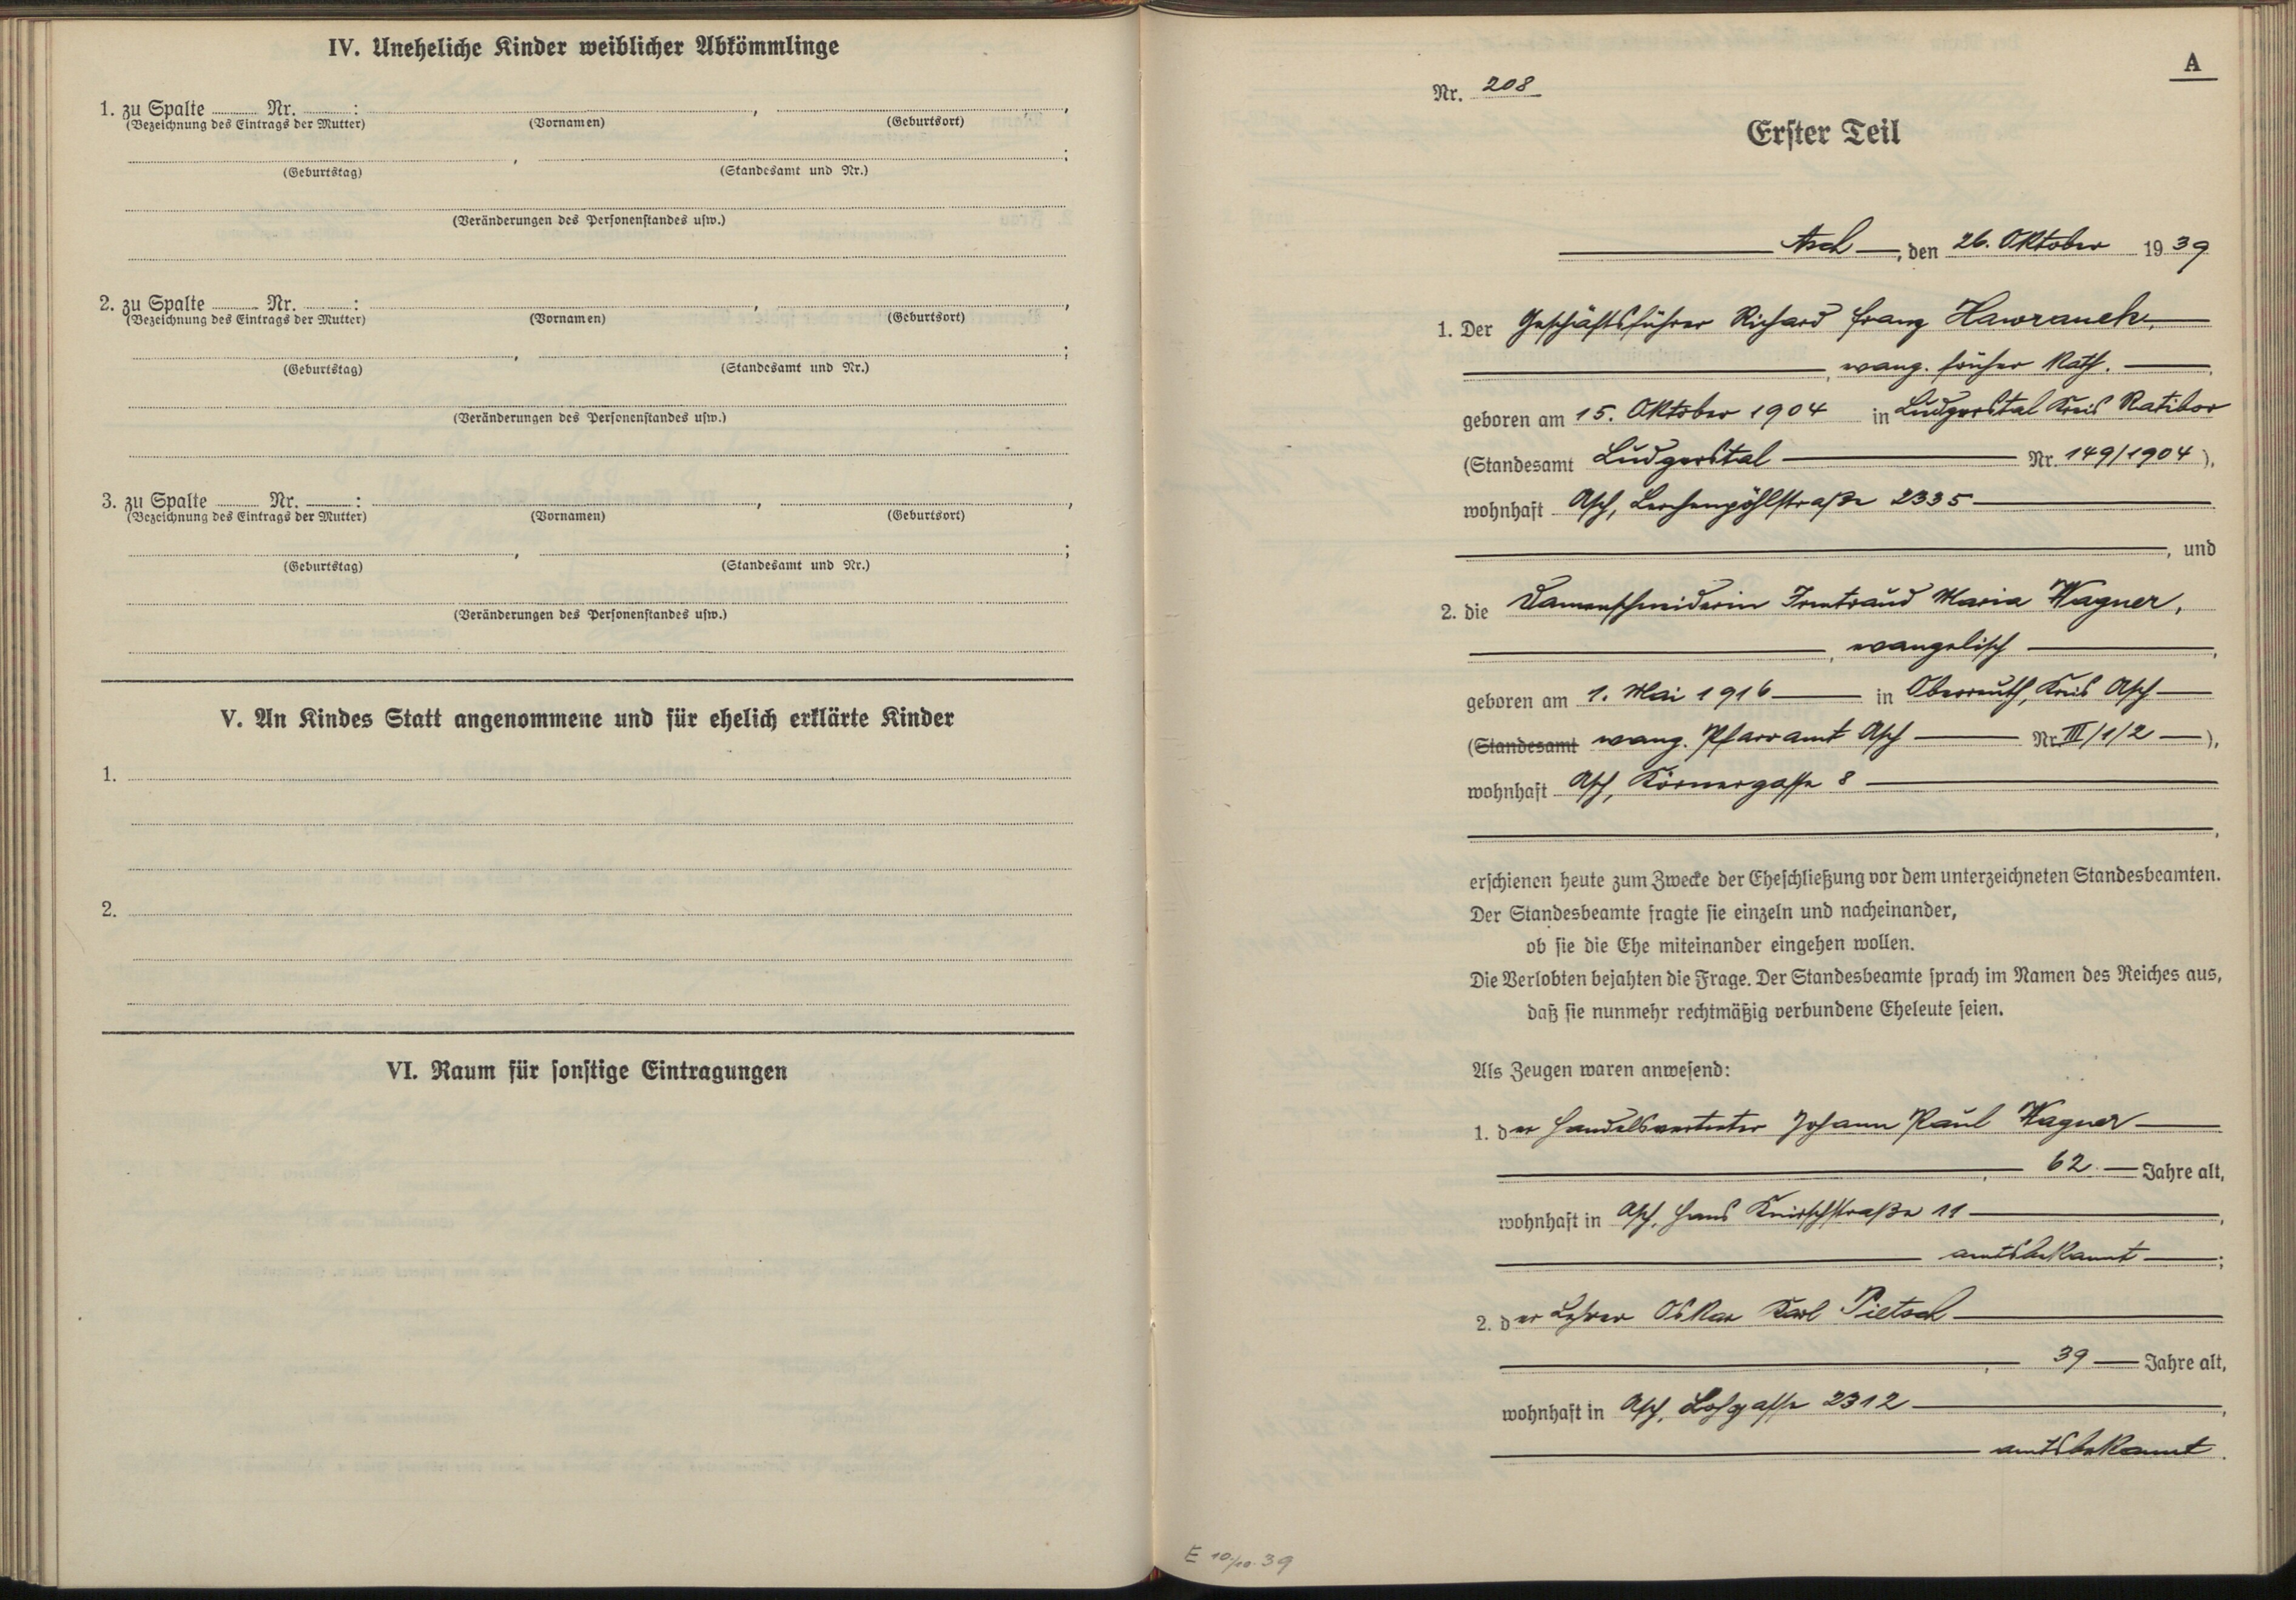 IV. Uneheliche Kinder weiblicher Abkömmlinge
1. zu Spalte ........ Nr. ........ : , ,
(Bezeichnung des Eintrags der Mutter) (Vornamen) (Geburtsort)
, ;
(Geburtstag) (Standesamt und Nr.)
(Veränderungen des Personenstandes usw.)
2. zu Spalte ........ Nr. ........ : , ,
(Bezeichnung des Eintrags der Mutter) (Vornamen) (Geburtsort)
, ;
(Geburtstag) (Standesamt und Nr.)
(Veränderungen des Personenstandes usw.)
3. zu Spalte ........ Nr. ........ : , ,
(Bezeichnung des Eintrags der Mutter) (Vornamen) (Geburtsort)
, ;
(Geburtstag) (Standesamt und Nr.)
(Veränderungen des Personenstandes usw.)
V. An Kindes Statt angenommene und für ehelich erklärte Kinder
1.
2.
VI. Raum für sonstige Eintragungen
A
Nr. 208
Erster Teil
Asch, den 26. Oktober 1939
1. Der Geschäftsführer Richard Franz Hawranek,
, evang. früher kath.,
geboren am 15. Oktober 1904 in Ludgerstal Kreis Ratibor
(Standesamt Ludgerstal Nr. 149/1904),
wohnhaft Asch, Lerchenpöhlstraße 2335
, und
2. die Damenschneiderin Irmtraud Maria Wagner,
, evangelisch,
geboren am 1. Mai 1916 in Oberreuth, Kreis Asch
(Standesamt evang. Pfarramt Asch Nr. III/1/2),
wohnhaft Asch, Körnergasse 8
,
erschienen heute zum Zwecke der Eheschließung vor dem unterzeichneten Standesbeamten.
Der Standesbeamte fragte sie einzeln und nacheinander,
ob sie die Ehe miteinander eingehen wollen.
Die Verlobten bejahten die Frage. Der Standesbeamte sprach im Namen des Reiches aus,
daß sie nunmehr rechtmäßig verbundene Eheleute seien.
Als Zeugen waren anwesend:
1. der Handelsvertreter Johann Paul Wagner
, 62 Jahre alt,
wohnhaft in Asch, Hans Knirschstraße 11,
amtsbekannt;
2. der Lehrer Oskar Karl Pietsch
, 39 Jahre alt,
wohnhaft in Asch, Lohgasse 2312,
amtsbekannt.
E 10/10.39